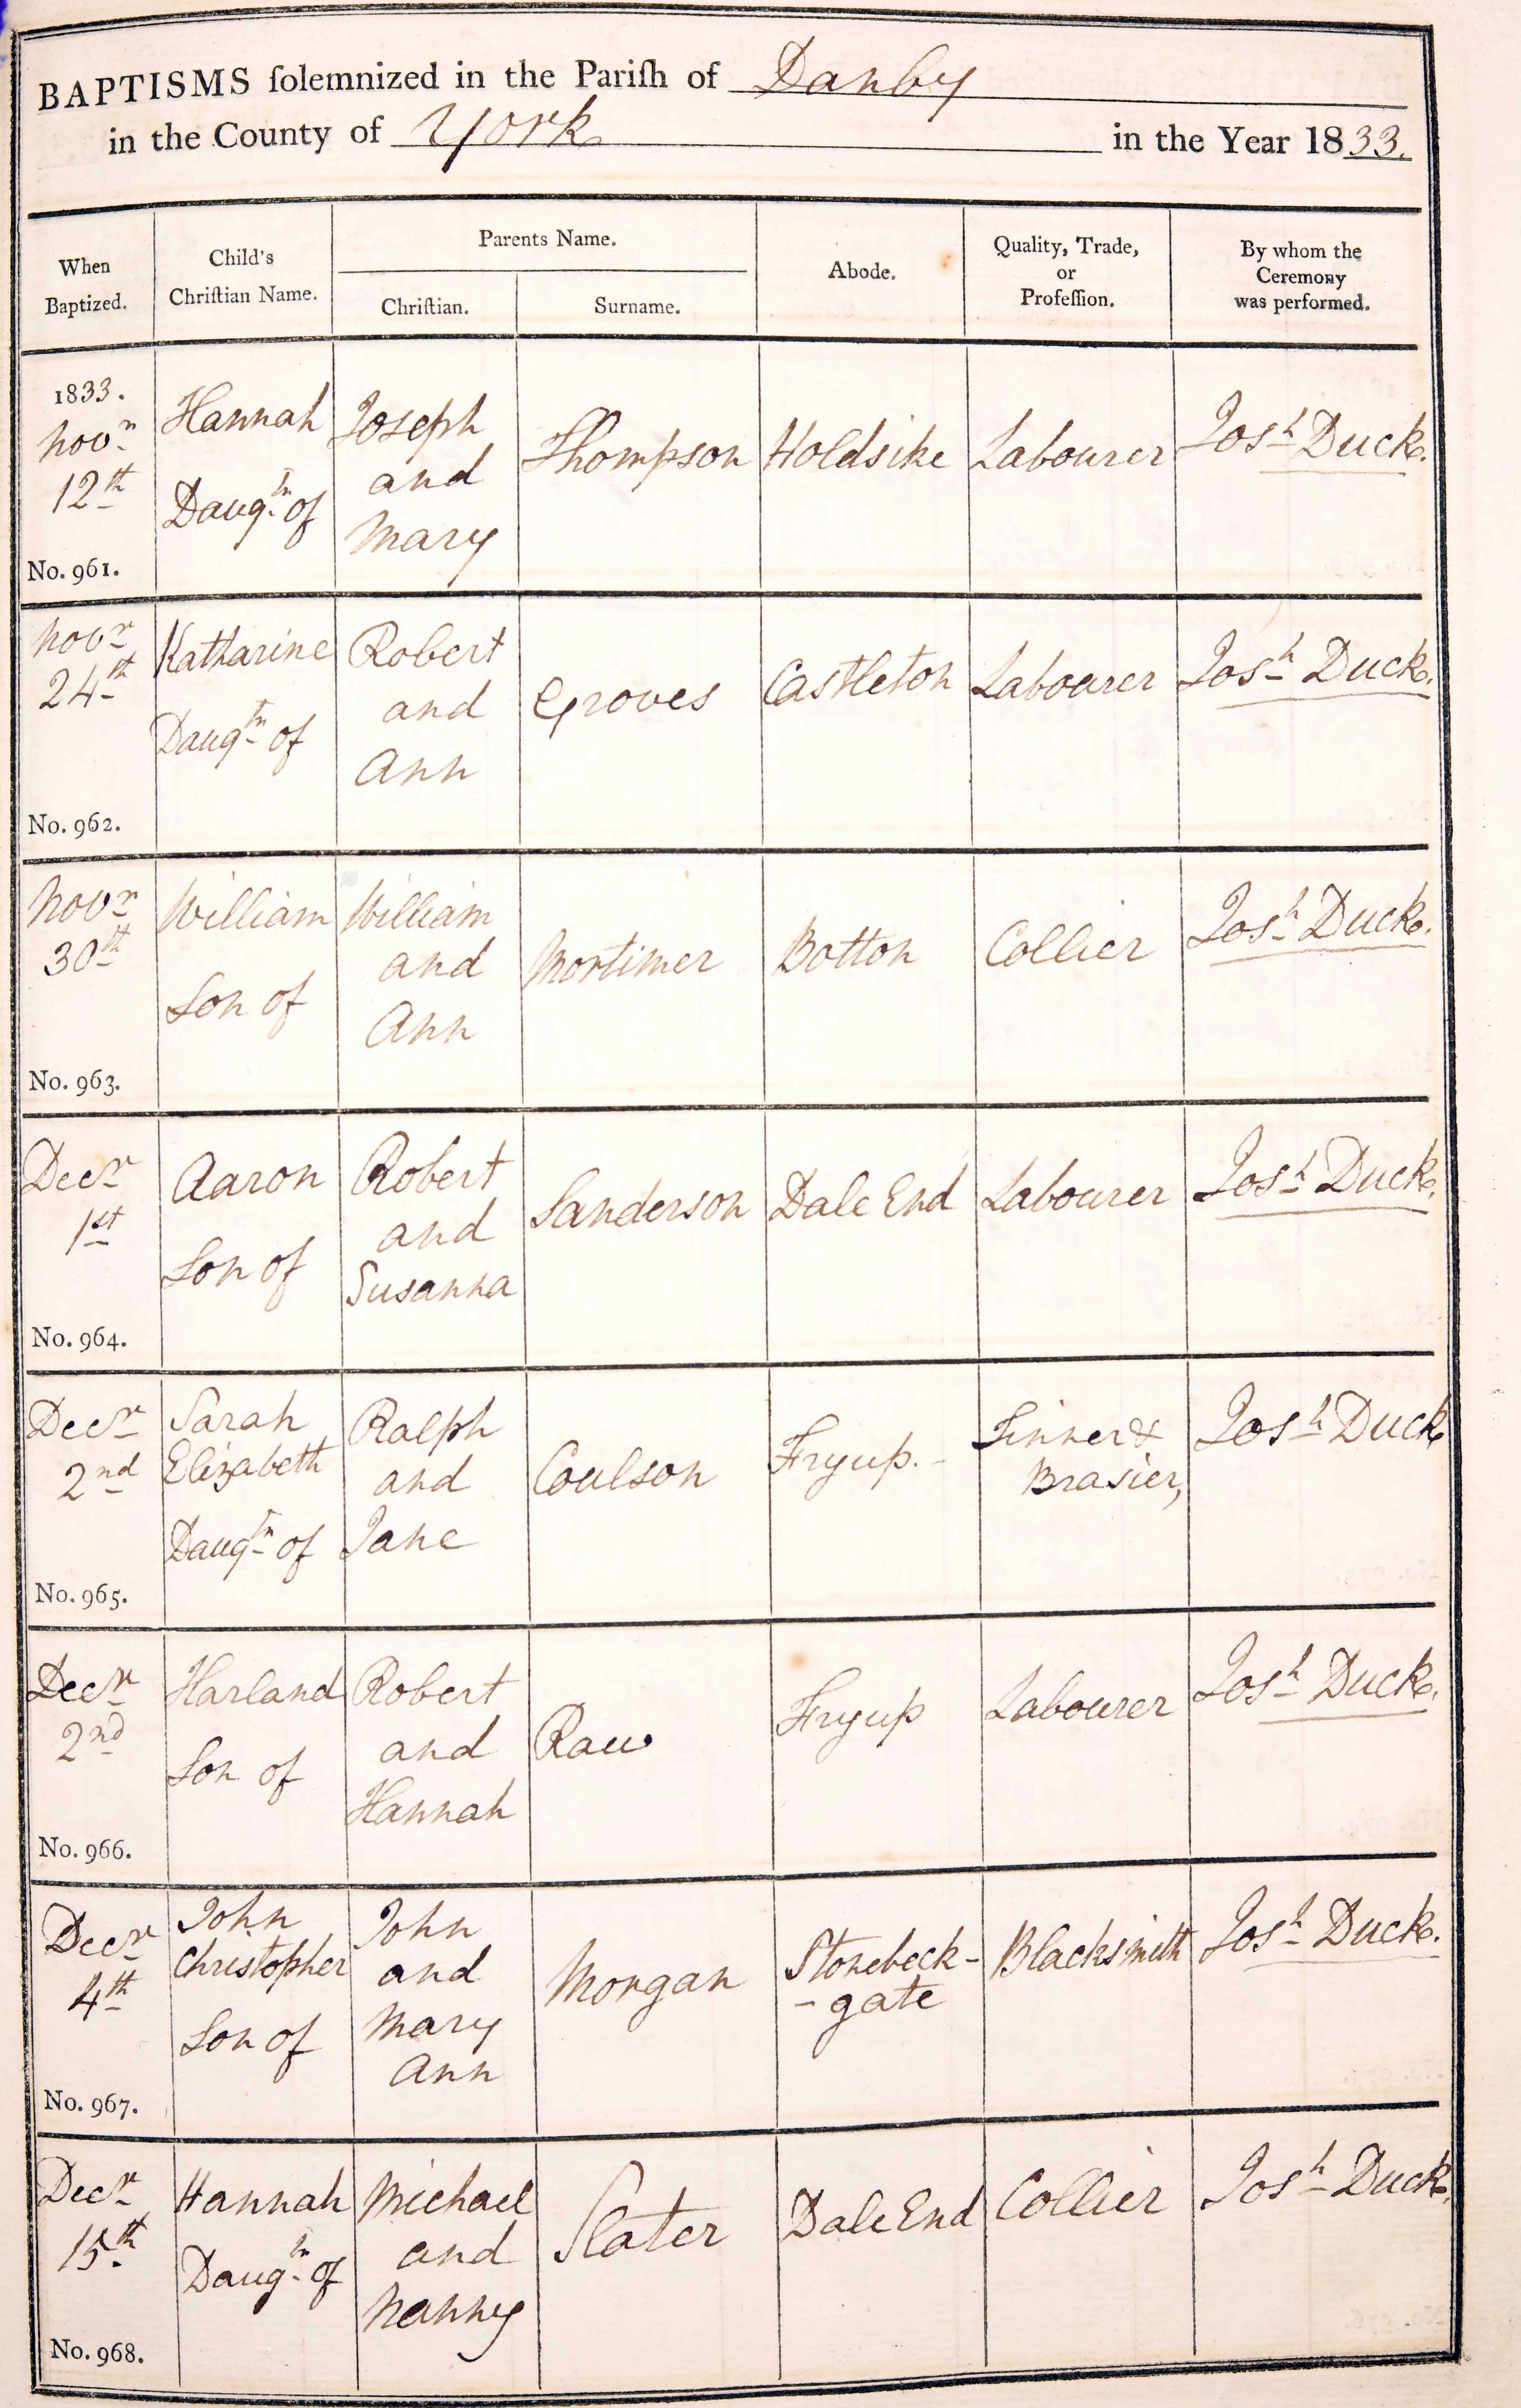 BAPTISMS ſolemnized in the Pariſh of Danby
in the County of York in the Year 1833.
When
Baptized.
Child's
Chriſtian Name.
Parents Name.
Chriſtian.
Surname.
Abode.
Quality, Trade,
or
Profeſſion.
By whom the
Ceremony
was performed.
1833.
Novr
12th
No. 961.
Hannah
Daugtr of
Joseph
and
Mary
Thompson
Holdsike
Labourer
Josh Duck.
Novr
24th
No. 962.
Katharine
Daugtr of
Robert
and
Ann
Groves
Castleton
Labourer
Josh Duck.
Novr
30th
No. 963.
William
Son of
William
and
Ann
Mortimer
Botton
Collier
Josh Duck.
Decr
1st
No. 964.
Aaron
Son of
Robert
and
Susanna
Sanderson
Dale End
Labourer
Josh Duck.
Decr
2nd
No. 965.
Sarah
Elizabeth
Daugtr of
Ralph
and
Jane
Coulson
Fryup.
Tinner &
Brasier,
Josh Duck
Decr
2nd
No. 966.
Harland
Son of
Robert
and
Hannah
Raw
Fryup
Labourer
Josh Duck.
Decr
4th
No. 967.
John
Christopher
Son of
John
and
Mary
Ann
Morgan
Stonebeck-
-gate
Blacksmith
Josh Duck.
Decr
15th
No. 968.
Hannah
Daugtr of
Michael
and
Nanny
Slater
Dale End
Collier
Josh Duck.